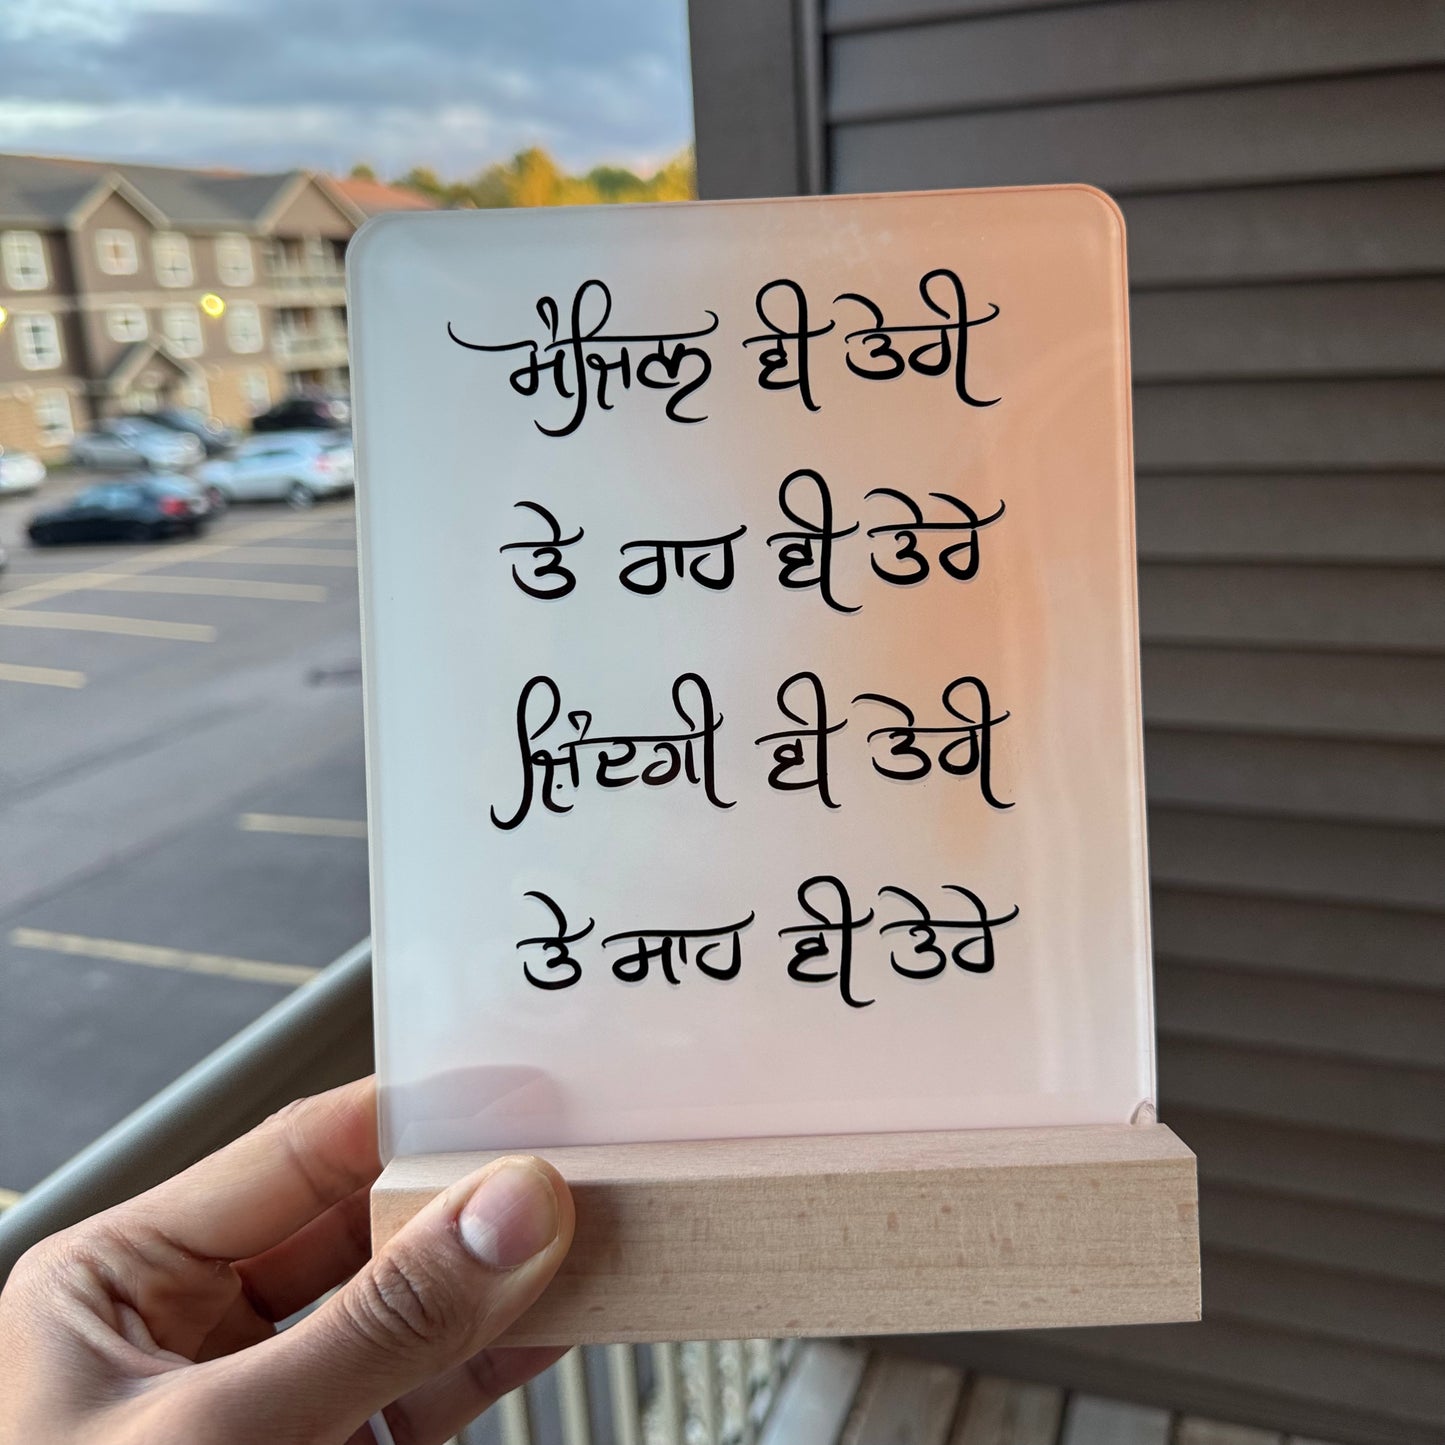 ਮੰਜਿਲ ਵੀ ਤੇਰੀ
ਤੇ ਰਾਹ ਵੀ ਤੇਰੇ
ਜ਼ਿੰਦਗੀ ਵੀ ਤੇਰੀ
ਤੇ ਸਾਹ ਵੀ ਤੇਰੇ